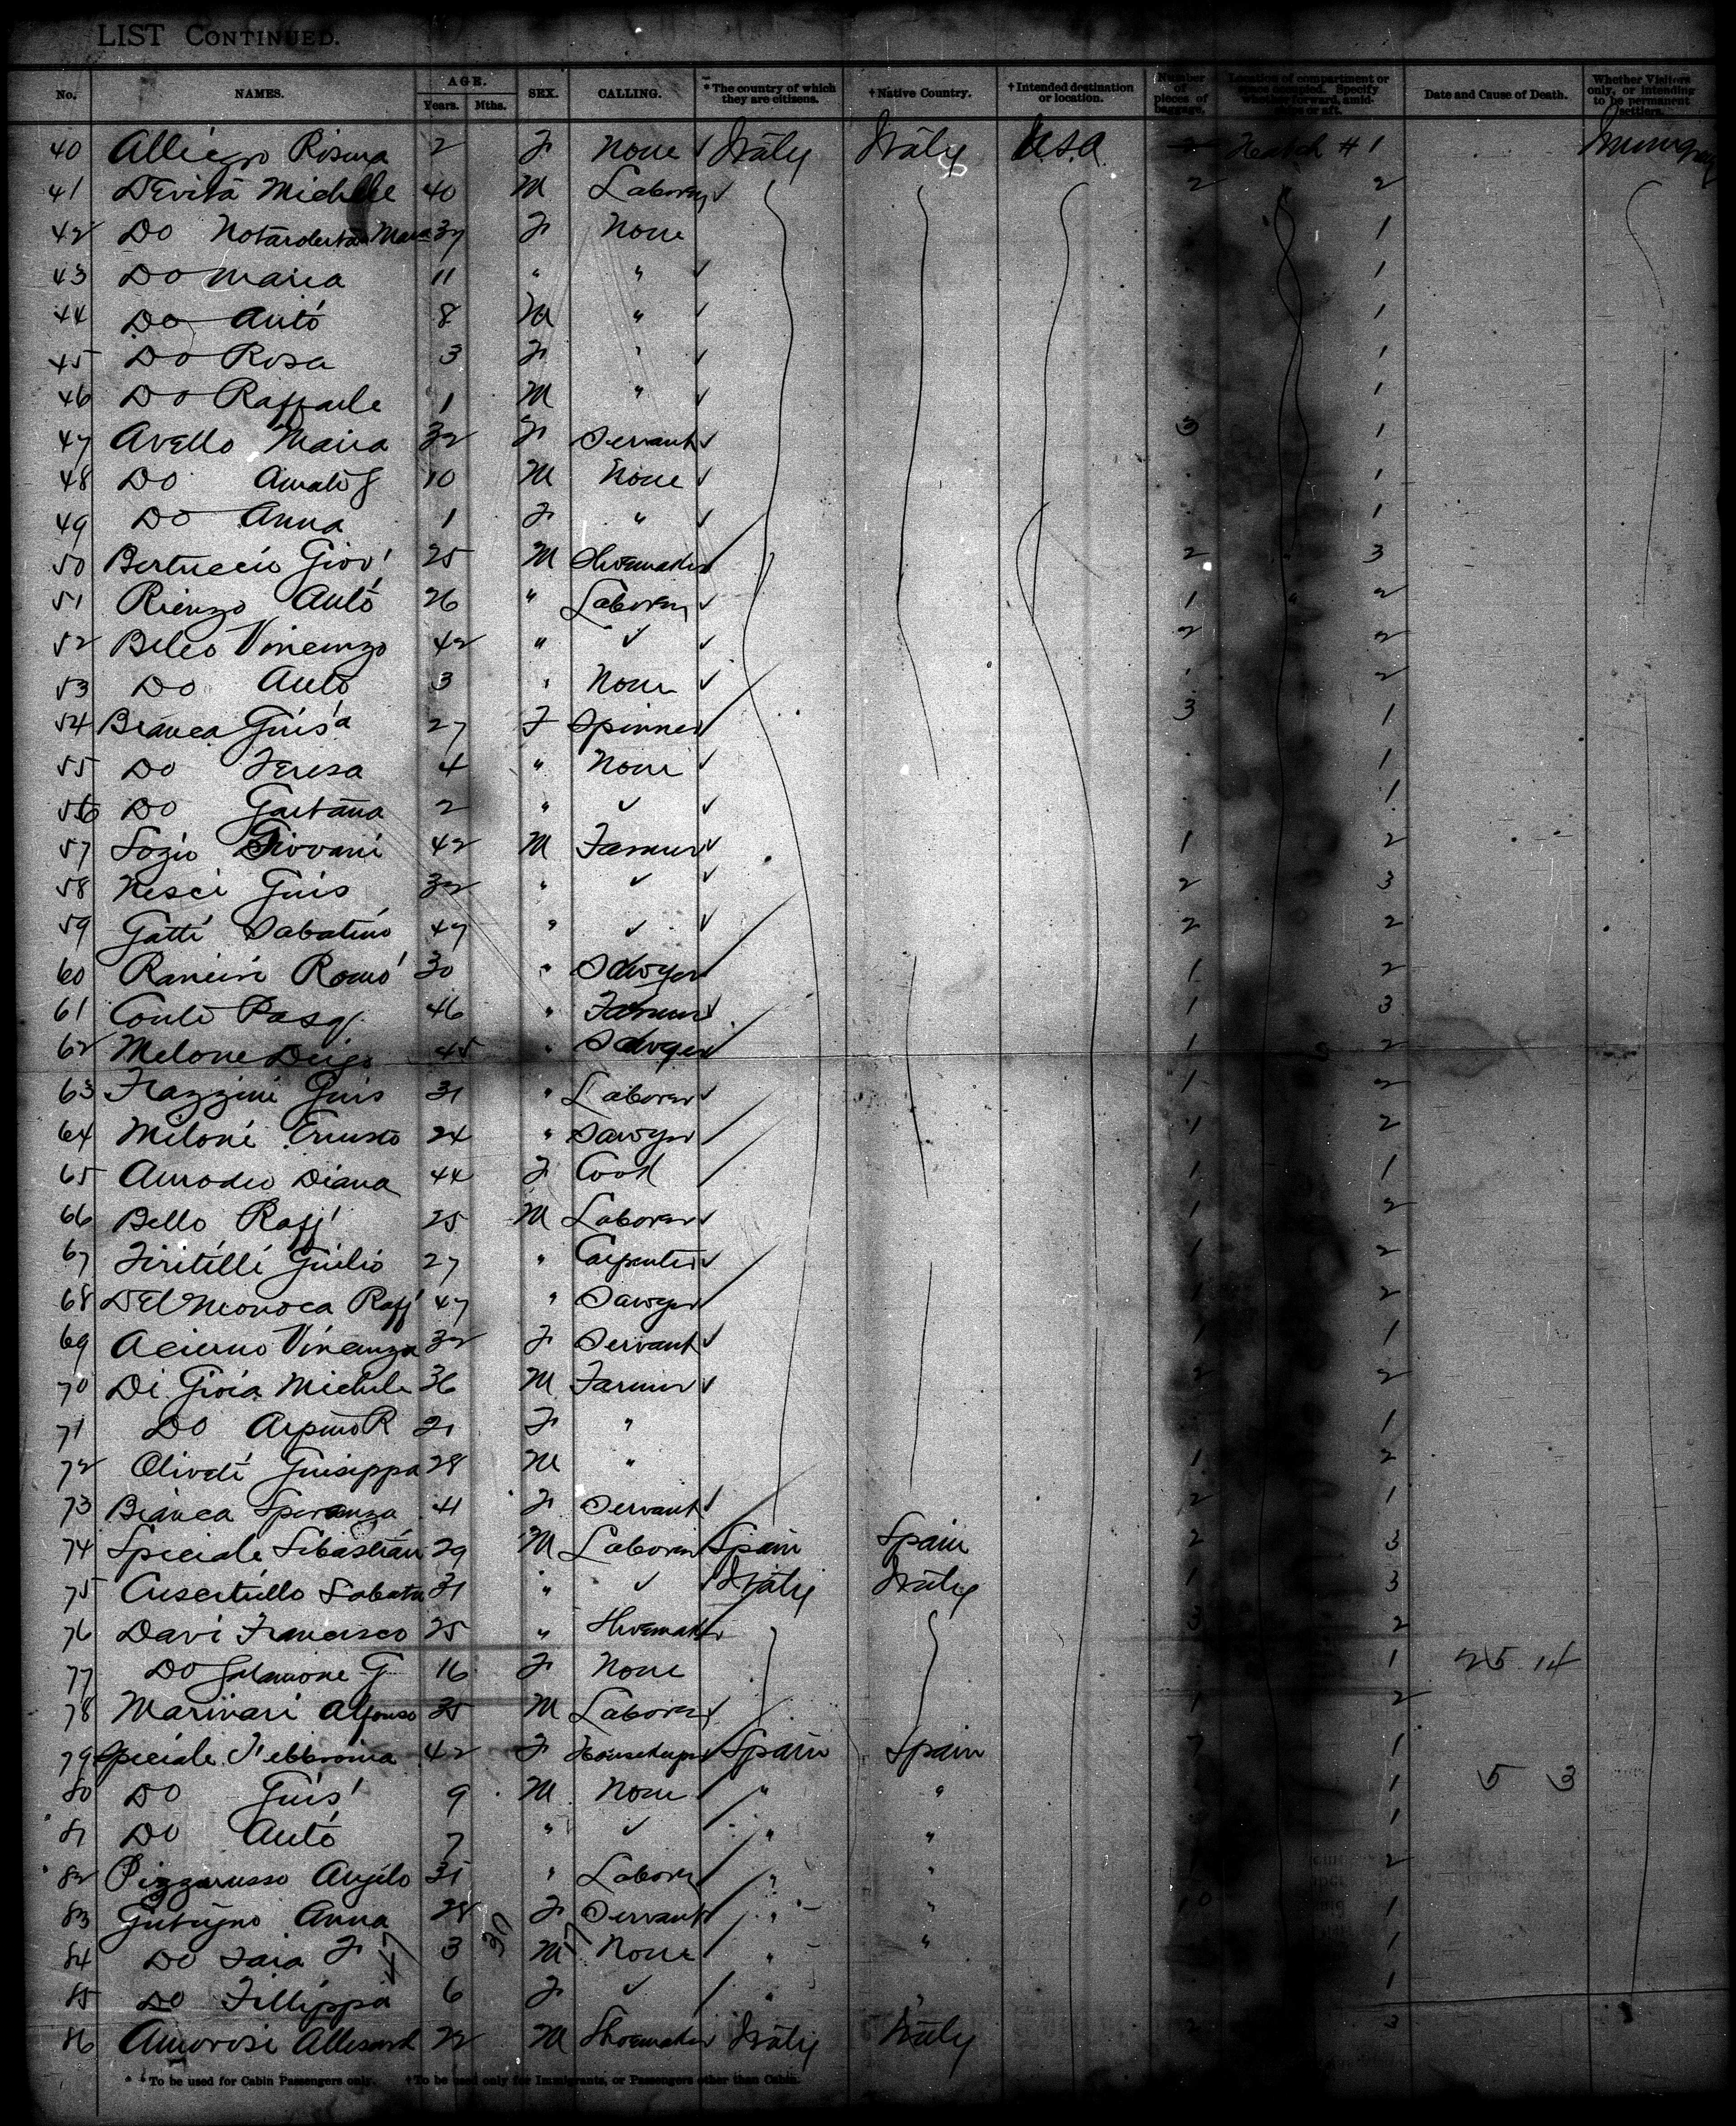 LIST CONTINUED.
No. NAMES. AGE. Years. Mths. SEX. CALLING. * The country of which they are citizens. † Native Country. † Intended destination or location. Number of pieces of baggage. Location of compartment or space occupied. Specify whether forward, amidships or aft. Date and Cause of Death. Whether Visitors only, or intending to be permanent settlers.
40 Alliegro Rosina 2 F None ✓ Italy Italy U.S.A. Hatch # 1
41 DEvita Michele 40 M Laborer ✓ 2 2
42 Do Maria 37 F None 1
43 Do Maria 11 " " ✓ 1
44 Do Antº 8 M " ✓ 1
45 Do Rosa 3 F " ✓ 1
46 Do Raffaele 1 M " ✓ 1
47 Avello Maria 32 F Servant ✓ 3 1
48 Do 10 M None ✓ 1
49 Do Anna 1 F " ✓ 1
50 Bertuccio Giov' 25 M Shoemaker ✓ 2 3
51 Rienzo Antº 26 " Laborer ✓ 1 2
52 Beleo Vincenzo 42 " ✓ ✓ 2 2
53 Do Antº 3 " None ✓ 1 2
54 Bianca Guisª 27 F Spinner ✓ 3 1
55 Do Teresa 4 " None ✓ 1
56 Do Gaetana 2 " ✓ ✓ 1
57 Sozio Giovani 42 M Farmer ✓ 1 2
58 Nesci Guis 32 " ✓ ✓ 2 3
59 Gatti Sabatino 47 " ✓ ✓ 2 2
60 Romº 30 " Sawyer 1 2
61 Conte Pasq. 46 " Farmer ✓ 1 3
62 Melone 45 " Sawyer 1 2
63 Frazzini Guis 31 " Laborer ✓ 1 2
64 Meloni Ernesto 24 " Sawyer 1 2
65 Amodeo Diana 44 F Cook 1 1
66 Bello Raff' 25 M Laborer ✓ 1 2
67 Firitelli Guilio 27 " Carpenter ✓ 1 2
68 DEl Monoca Raff' 47 " Sawyer 1 2
69 Acierno Vincenza 32 F Servant ✓ 1 1
70 Di Gioia Michele 36 M Farmer ✓ 2 2
71 Do Arpino R 21 F " 1
72 Guiseppa 28 M " 1 2
73 Bianca Speranza 41 F Servant ✓ 2 1
74 Speciale Sebastian 29 M Laborer Spain Spain 2 3
75 Sabata 31 " ✓ Italy Italy 1 3
76 Davi Francesco 25 " Shoemaker 3 2
77 Do G 16 F None 1 25 14
78 Marinari Alfonso 35 M Laborer ✓ 1 2
79 Speciale 42 F Housekeeper Spain Spain 7 1
80 Do Guis' 9 M None " " 1 5 3
81 Do Antº 7 " ✓ " " 1
82 Pizzarusso Angelo 31 " Laborer " " 2
83 Anna 28 F Servant " " 10 1
84 Do 3 M None " " 1
85 Do Fillippa 6 F ✓ " " 1
86 Amorosi 22 M Shoemaker Italy Italy 2 3
* To be used for Cabin Passengers only. † To be used only for Immigrants, or Passengers other than Cabin.